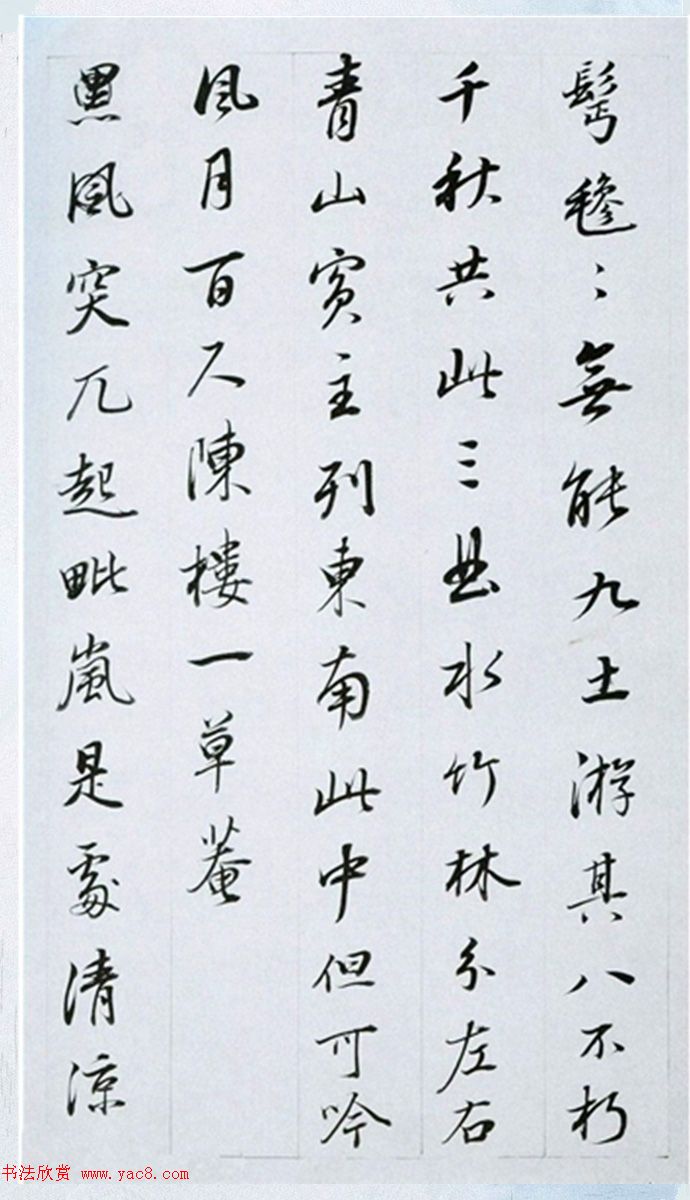 髩毿〻無能九土游其八不朽
千秋共此三曲水竹林分左右
青山賓主列東南此中但可吟
風月百尺陳樓一草菴
黑風突兀起毗嵐是處清涼
书法欣赏 www.yac8.com